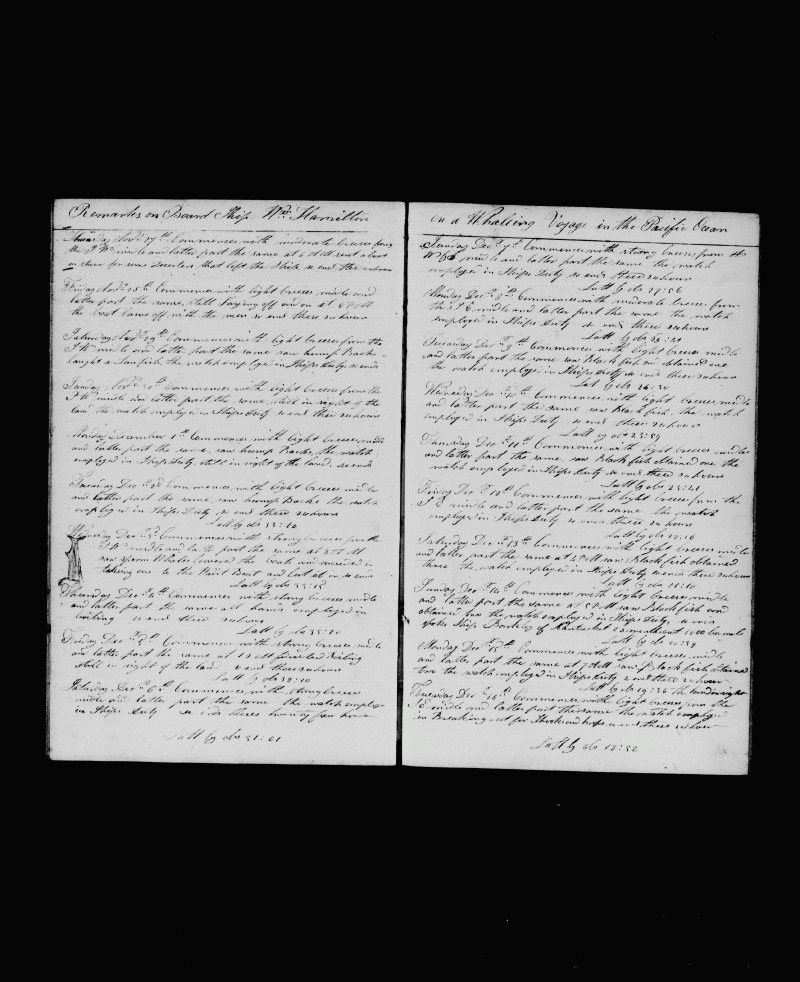 Remarks on Board Ship Wm Hamilton
Thursday Novr 27th Commences with moderate breeses from
the S W midle and latter part the same at 6 A M sent a boat
on shore for some Deserters that left the Ship so end these 24 hours
Friday Novr 28th Commences with light breeses midle and
latter part the same, still laying off and on at 8 P M
the boat came off with the men so ends these 24 hours
Saturday Novr 29th Commences with light breeses from the
S W midle and latter part the same saw hump Backs
caught a Sunfish the watch employed in Ships Duty so ends
Sunday Novr 30th Commences with light breeses from the
S W midle and latter part the same, still in sight of the
land the watch employed in Ships Duty so end these 24 hours
Monday December 1st Commences with light breeses midle
and latter part the same, saw hump Backs, the watch
employed in Ships Duty still in sight of the land, so ends
Tuesday Decr 2d Commences with light breeses midle
and latter part the same saw hump Backs the watch
employed in Ships Duty so ends these 24 hours
Latt by obs 33:10
Wednesday Decr 3d Commences with strong breeses from the
S W midle and latter part the same at 3 P M
saw sperm Whales lowered the boats and succeded in
taking one to the Waist Boat and Cut it in so ends
Latt by obs 33:15
Thursday Decr 4th Commences with strong breeses midle
and latter part the same all hands employed in
boiling so ends these 24 hours
Latt by obs 33:20
Friday Decr 5th Commences with strong breeses midle
and latter part the same at 1 A M finished Boiling
still in sight of the land so ends these 24 hours
Latt by obs 32:20
Saturday Decr 6th Commences with strong breeses
midle and latter part the same the watch employed
in Ships Duty so ends theses twenty four hours
Latt by obs 31:01
on a Whaleing Voyage in the Pacific Ocean
Sunday Decr 7th Commences with strong breeses from the
midle and latter part the same the watch
employed in Ships Duty so ends these 24 hours
Latt by obs 27:56
Monday Decr 8th Commences with moderate breeses from
the S E midle and latter part the same the watch
employed in Ships Duty so ends these 24 hours
Latt by obs 25:21
Tuesday Decr 9th Commences with light breeses midle
and latter part the same saw Black fish and obtained one
the watch employed in Ships Duty so ends these 24 hours
Lat by obs 24:30
Wednesday Decr 10th Commences with light breeses midle
and latter part the same saw Black fish, the watch
employed in Ships Duty so ends these 24 hours
Latt by obs 23:59
Thursday Decr 11th Commences with light breeses midle
and latter part the same, saw Black fish obtained one the
watch employed in Ships Duty so ends these 24 hours
Latt by obs 23:41
Friday Decr 12th Commences with light breeses from the
S E midle and latter part the same the watch
employed in Ships Duty so ends these 24 hours
Latt by obs 22:16
Saturday Decr 13th Commences with light breeses midle
and latter part the same at 4 P M saw Black fish obtained
three the watch employed in Ships Duty so ends these 24 hours
Latt by obs 21:10
Sunday Decr 14th Commences with light breeses midle
and latter part the same at 5 P M saw Blackfish and
obtained the watch employed in Ships Duty, so ends
spoke Ship Barkley of Nantucket 20 months out 1100 barrels
Latt by obs 20:39
Monday Decr 15th Commences with light breeses midle
and latter part the same at 7 A M saw Black fish obtained
two the watch employed in Ships Duty so ends these 24 hours
Latt by obs 19:36
Tuesday Decr 16th Commences with light breeses from the
S E midle and latter part the same the watch employed
in Breaking out for Shooks and hoops so ends these 24 hours
Latt by obs 18:52